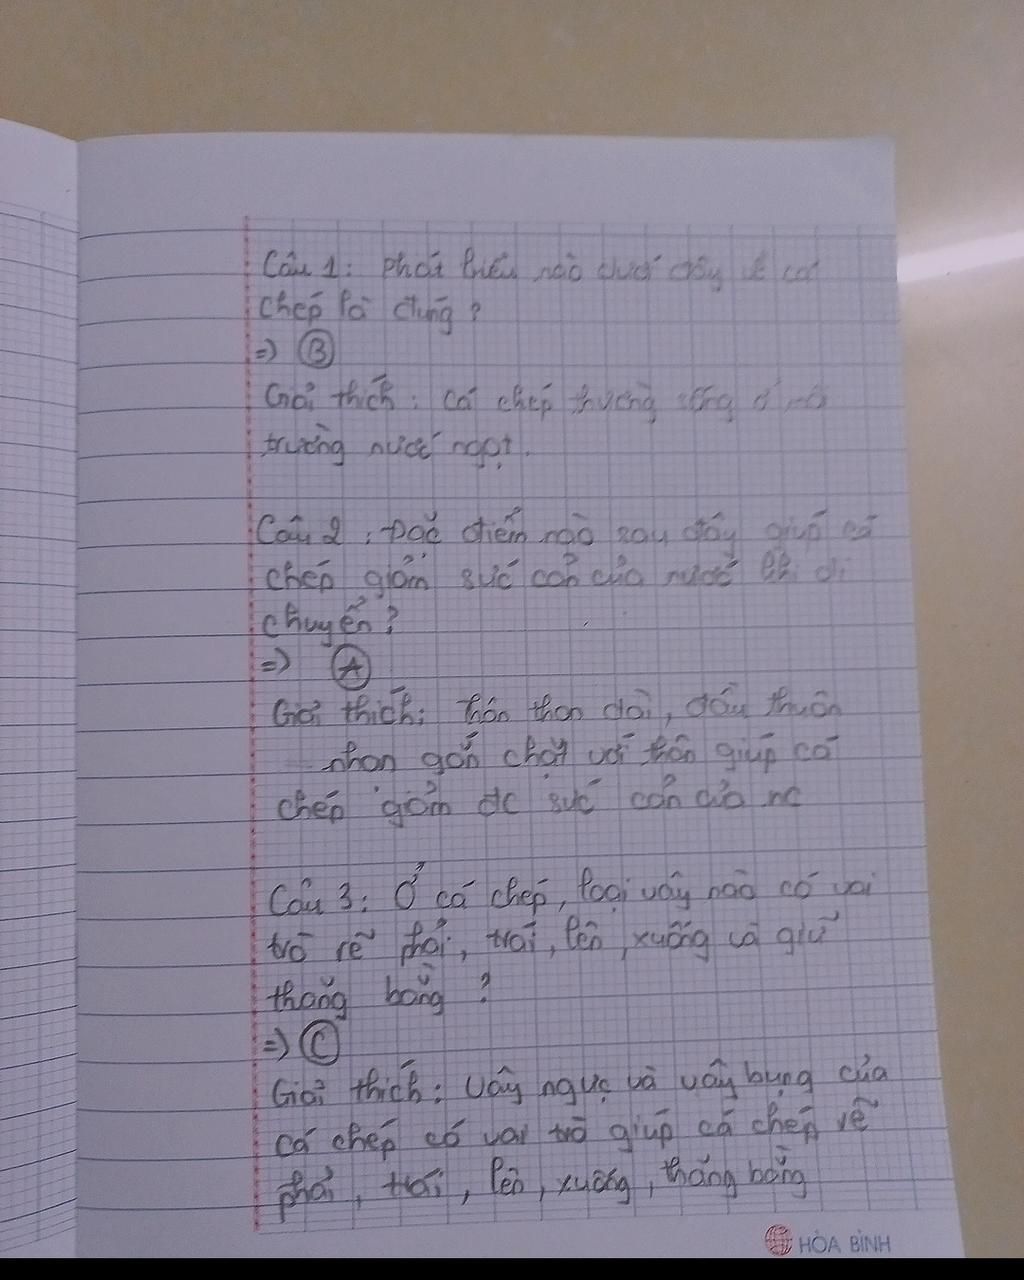 Câu 1: Phát biểu nào dưới đây về cá
chép là đúng?
=> B
Giải thích: Cá chép thường sống ở môi
trường nước ngọt.
Câu 2: Đặc điểm nào sau đây giúp cá
chép giảm sức cản của nước khi di
chuyển?
=> A
Giải thích: Thân thon dài, đầu thuôn
nhọn gắn chặt với thân giúp cá
chép giảm đc sức cản của nc
Câu 3: Ở cá chép, loại vây nào có vai
trò rẽ phải, trái, lên, xuống và giữ
thăng bằng?
=> C
Giải thích: Vây ngực và vây bụng của
cá chép có vai trò giúp cá chép rẽ
phải, trái, lên, xuống, thăng bằng
HÒA BÌNH